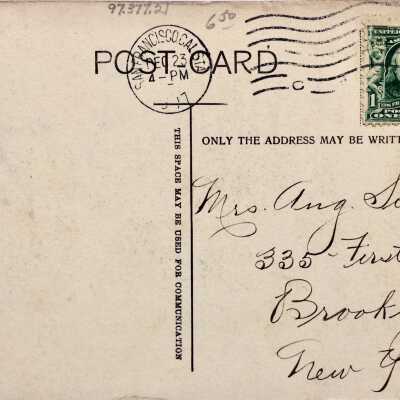 97.377.21
6 50
POST CARD
SAN FRANCISCO, CAL. STA.
DEC 23
4-PM
C
ONLY THE ADDRESS MAY BE WRIT
THIS SPACE MAY BE USED FOR COMMUNICATION
Mrs. Aug.
335- First
Brook
New Y